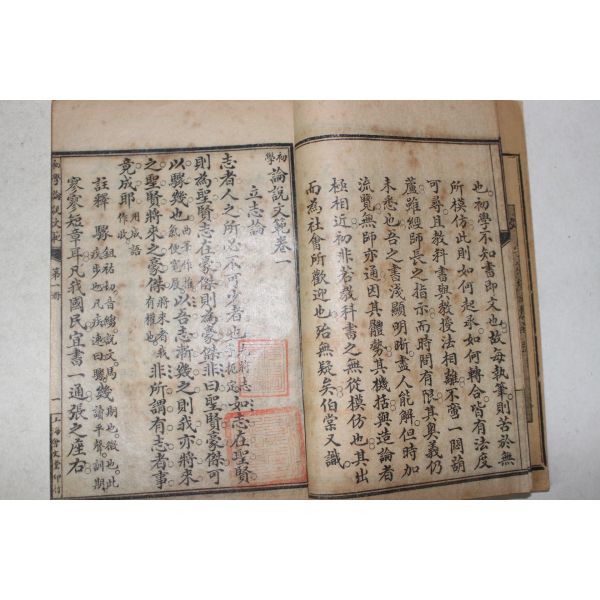 也初學不知書即文也故每執筆則苦於無
所模仿此則如何起承如何轉合皆有法度
可尋且教科書與教授法相離不啻一悶葫
蘆雖經師長之指示而時間有限其奧義仍
未悉也吾之書淺顯明晰盡人能解但時加
流覽無師亦通因其體勢其機括與造論者
極相近初非若教科書之無從模仿也其出
而為社會所歡迎也殆無疑矣伯棠又識
初學論說文範卷一
立志論
志者人之所必不可少者也 如志在聖賢
則為聖賢志在豪傑則為豪傑非曰聖賢豪傑可
以驟幾也 以吾志漸幾之則我亦將來
之聖賢將來之豪傑 非所謂有志者事
竟成耶 用成語作收
寥寥短章耳凡我國民宜書一通張之座右
註釋 驟 鉏祐切音縐說文馬疾步也凡疾速曰驟 幾 期也微也此讀平聲訓期
初學論說文範 第一冊 一 上海會文堂印行